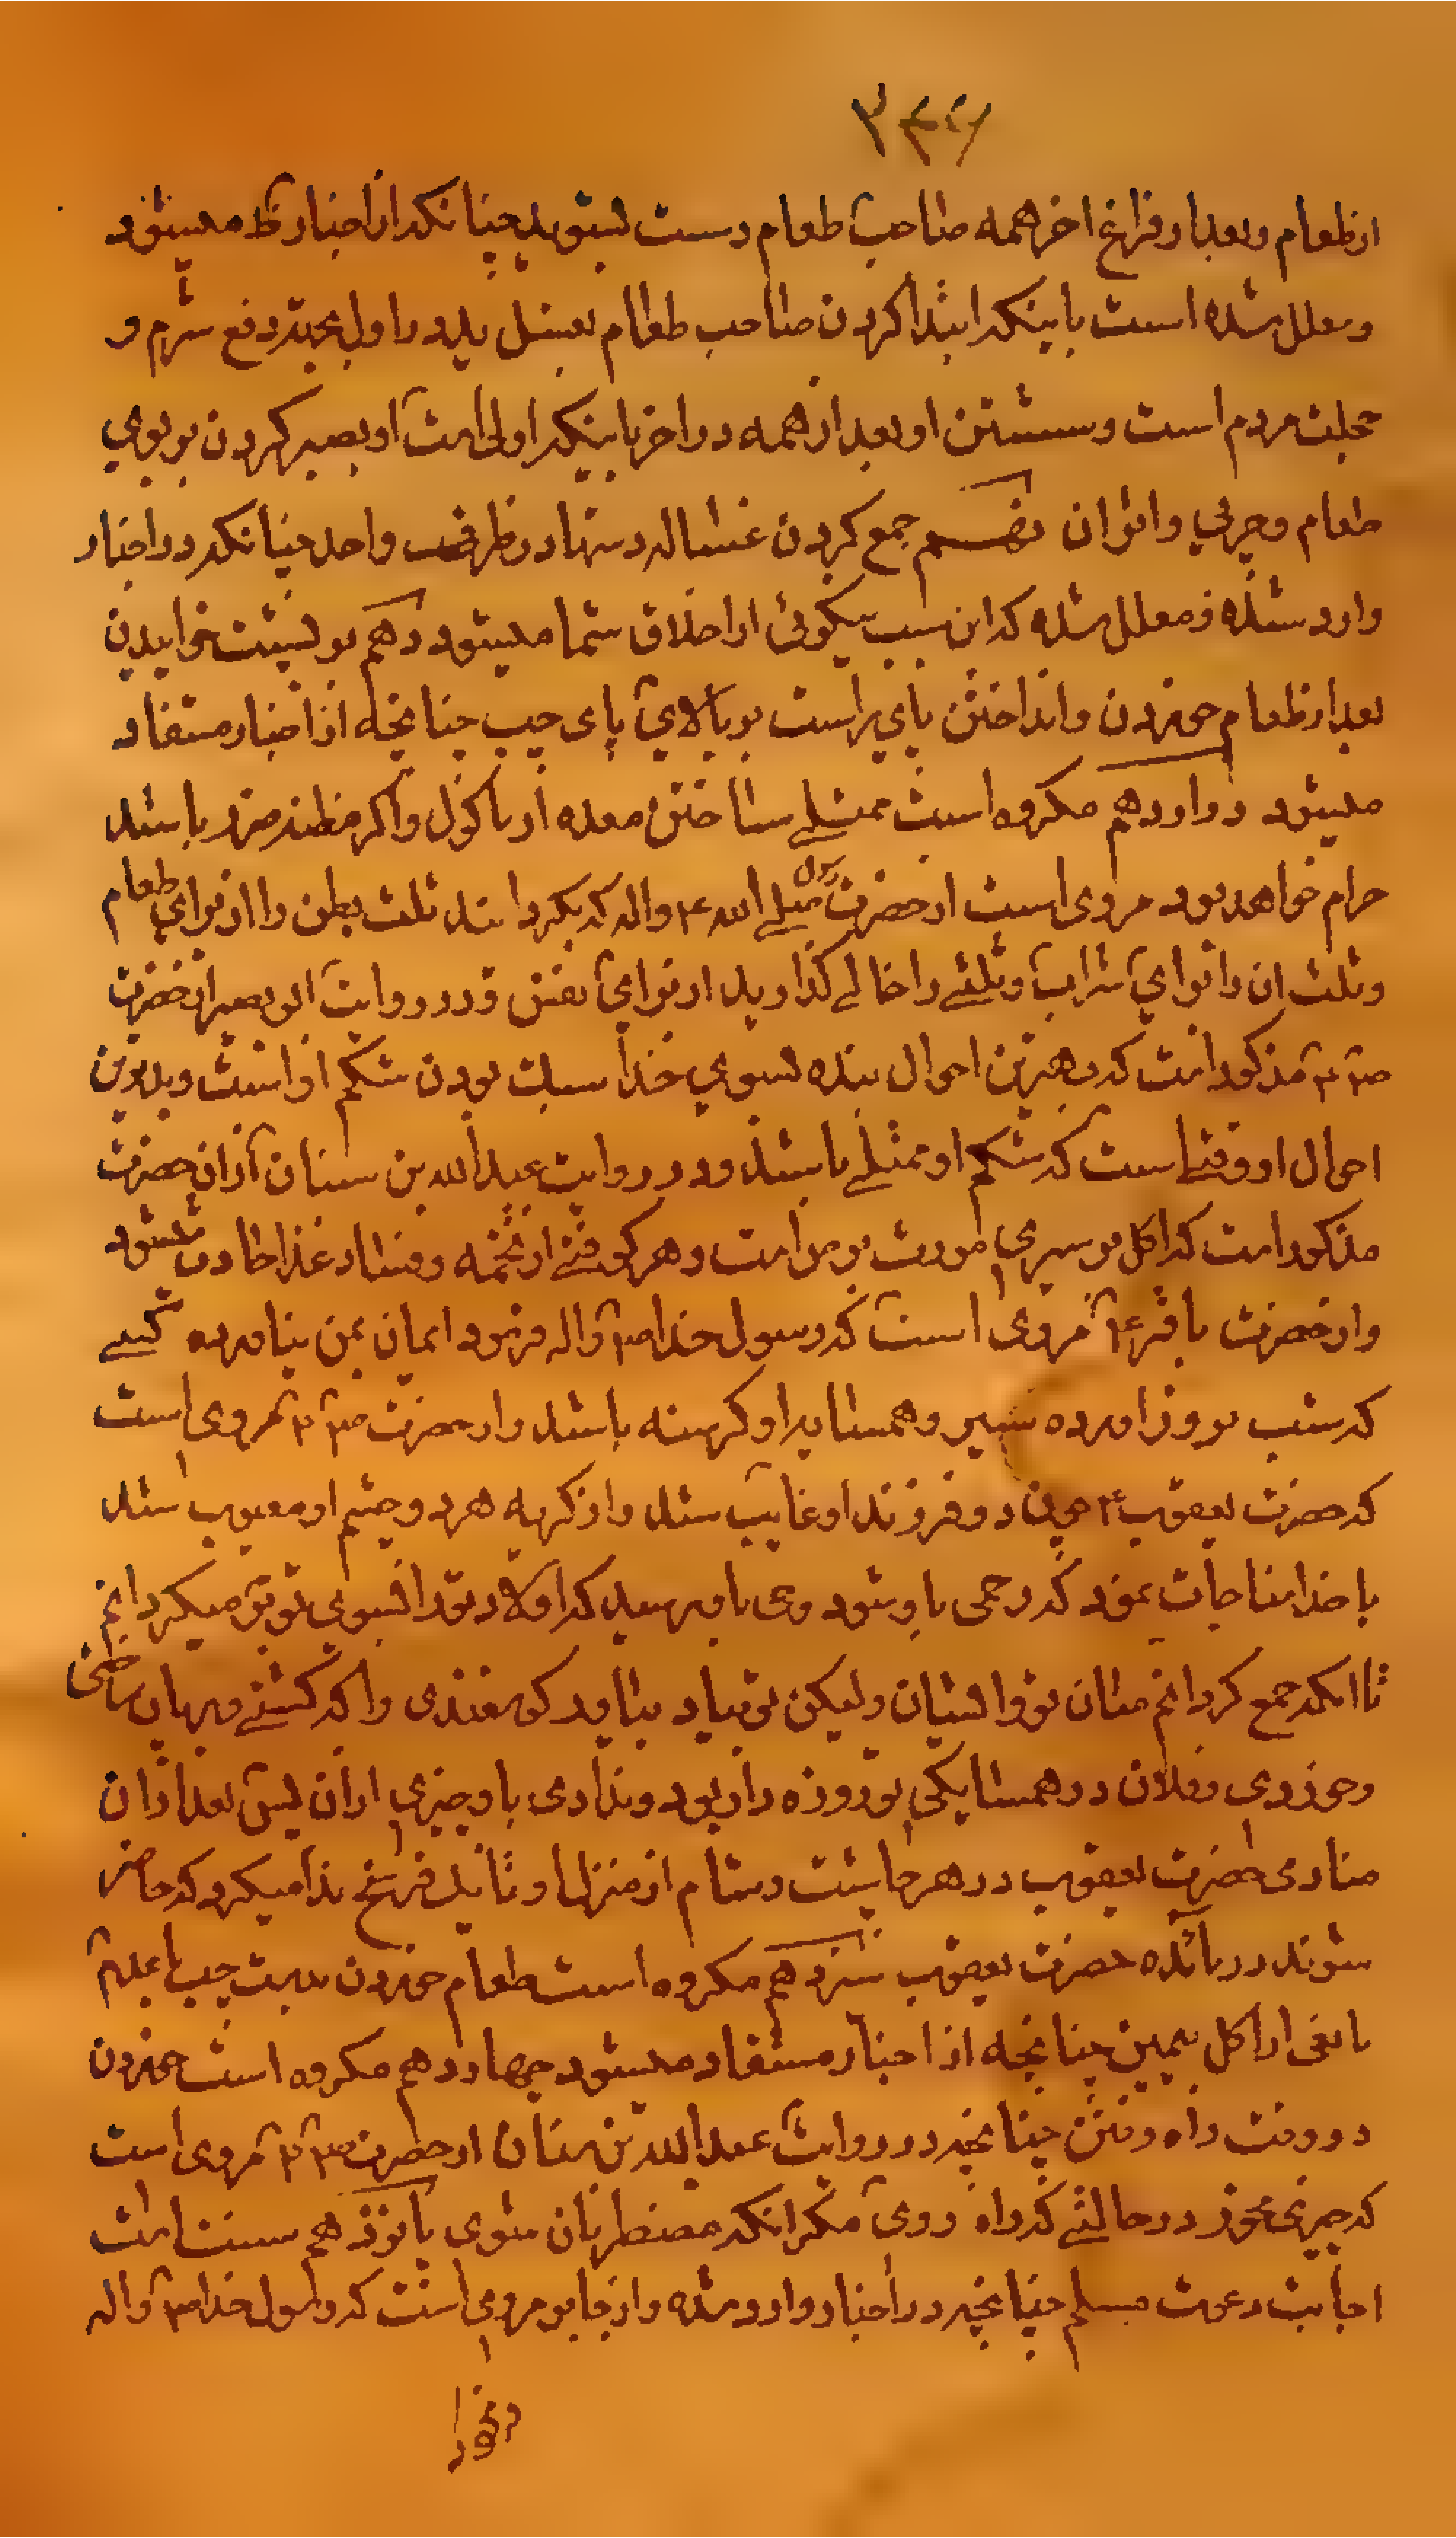 از طعام و بعد از فراغ اخر همه صاحب طعام دست بشوید چنانکه از اخبار ظ میشود
و معلل شده است باینکه ابتدا کردن صاحب طعام بغسل ید در اول بجهة دفع شرم و
خجلت مردم است و شستن او بعد از همه در اخر باینکه اولی است او بصبر کردن بر بوی
طعام و چربی و اثر ان نهم جمع کردن غساله دستها در ظرف واحد چنانکه در اخبار
وارد شده و معلل شده که این سبب نیکوئی اخلاق شما میشود دهم بر پشت خوابیدن
بعد از طعام خوردن و انداختن پای راست بر بالای پای چپ چنانچه از اخبار مستفاد
میشود دوازدهم مکروه است ممتلی ساختن معده از ماکول و اکر مظنه ضرر باشد
حرام خواهد بود مروی است از حضرت رسول صلی الله ع واله که بکردانند ثلث بطن را از برای طعام
و ثلث ان را برای شراب و ثلثی را خالی کذارید از برای نفس و در روایت ابو بصیر از حضرت
ص ع مذکور است که بهترین احوال بنده بسوی خدا سبک بودن شکم او است و بدترین
احوال او وقتی است که شکم او ممتلی باشد و در روایت عبدالله بن سنان از ان حضرت
مذکور است که اکل بر سیری مورث برص است و هر کوفتی از تخمه و فساد غذا حادث میشود
و از حضرت باقر ع مروی است که رسول خدا ص واله فرمود ایمان بمن نیاورده کسی
که شب بروز اورده سیر و همسایه او کرسنه باشد و از حضرت ص ع مروی است
که حضرت یعقوب ع چون دو فرزند او غایب شد و از کریه هر دو چشم او معیوب شد
با خدا مناجات نمود که رحمی باو شود وحی باو رسید که اولاد تو را بسوی تو برمیکردانم
تا انکه جمع کردانم میان تو و ایشان ولیکن تو بیاد بیاور کوسفندی را که کشتی و بریان ساختی
و خوردی و فلان در همسایکی تو روزه دار بود و ندادی باو چیزی از ان پس بعد از ان
منادی حضرت یعقوب در هر چاشت و شام از منزل او تا یک فرسخ ندا میکرد که حاضر
شوند در مائده حضرت یعقوب سیزدهم مکروه است طعام خوردن بدست چپ با عدم
مانعی از اکل بیمین چنانچه از اخبار مستفاد میشود چهاردهم مکروه است خوردن
در وقت راه رفتن چنانچه در روایت عبدالله بن سنان از حضرت ص ع مروی است
که چیزی مخور در حالتی که راه روی مکر انکه مضطر بان شوی پانزدهم سنت است
اجابت دعوت مسلم چنانچه در اخبار وارد شده و از جابر مروی است که رسول خدا ص واله